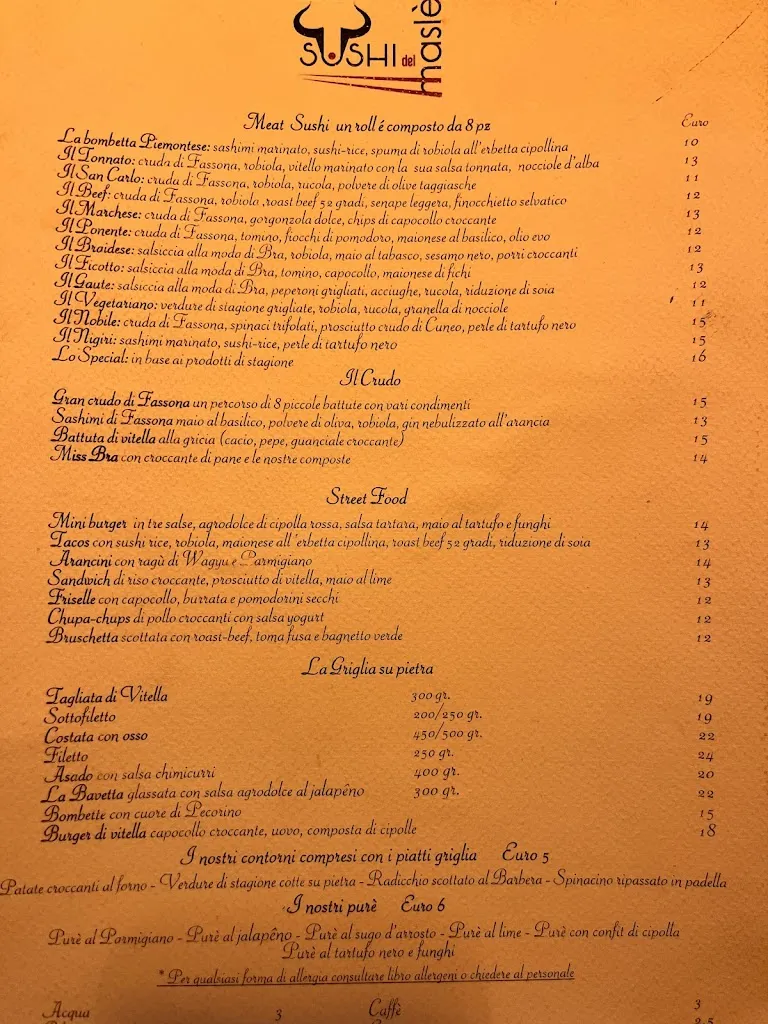 SUSHI del maslè
Meat Sushi un roll é composto da 8 pz Euro
La bombetta Piemontese: sashimi marinato, sushi-rice, spuma di robiola all'erbetta cipollina 10
Il Tonnato: cruda di Fassona, robiola, vitello marinato con la sua salsa tonnata, nocciole d'alba 13
Il San Carlo: cruda di Fassona, robiola, rucola, polvere di olive taggiasche 11
Il Beef: cruda di Fassona, robiola ,roast beef 52 gradi, senape leggera, finocchietto selvatico 12
Il Marchese: cruda di Fassona, gorgonzola dolce, chips di capocollo croccante 13
Il Ponente: cruda di Fassona, tomino, fiocchi di pomodoro, maionese al basilico, olio evo 12
Il Braidese: salsiccia alla moda di Bra, robiola, maio al tabasco, sesamo nero, porri croccanti 12
Il Ficotto: salsiccia alla moda di Bra, tomino, capocollo, maionese di fichi 13
Il Gaute: salsiccia alla moda di Bra, peperoni grigliati, acciughe, rucola, riduzione di soia 12
Il Vegetariano: verdure di stagione grigliate, robiola, rucola, granella di nocciole 11
Il Nobile: cruda di Fassona, spinaci trifolati, prosciutto crudo di Cuneo, perle di tartufo nero 15
Il Nigiri: sashimi marinato, sushi-rice, perle di tartufo nero 15
Lo Special: in base ai prodotti di stagione 16
Il Crudo
Gran crudo di Fassona un percorso di 8 piccole battute con vari condimenti 15
Sashimi di Fassona maio al basilico, polvere di oliva, robiola, gin nebulizzato all'arancia 13
Battuta di vitella alla gricia (cacio, pepe, guanciale croccante) 15
Miss Bra con croccante di pane e le nostre composte 14
Street Food
Mini burger in tre salse, agrodolce di cipolla rossa, salsa tartara, maio al tartufo e funghi 14
Tacos con sushi rice, robiola, maionese all'erbetta cipollina, roast beef 52 gradi, riduzione di soia 13
Arancini con ragù di Wagyu e Parmigiano 14
Sandwich di riso croccante, prosciutto di vitella, maio al lime 13
Friselle con capocollo, burrata e pomodorini secchi 12
Chupa-chups di pollo croccanti con salsa yogurt 12
Bruschetta scottata con roast-beef, toma fusa e bagnetto verde 12
La Griglia su pietra
Tagliata di Vitella 300 gr. 19
Sottofiletto 200/250 gr. 19
Costata con osso 450/500 gr. 22
Filetto 250 gr. 24
Asado con salsa chimicurri 400 gr. 20
La Bavetta glassata con salsa agrodolce al jalapêno 300 gr. 22
Bombette con cuore di Pecorino 15
Burger di vitella capocollo croccante, uovo, composta di cipolle 18
I nostri contorni compresi con i piatti griglia Euro 5
Patate croccanti al forno - Verdure di stagione cotte su pietra - Radicchio scottato al Barbera - Spinacino ripassato in padella
I nostri purè Euro 6
Purè al Parmigiano - Purè al jalapêno - Purè al sugo d'arrosto - Purè al lime - Purè con confit di cipolla
Purè al tartufo nero e funghi
* Per qualsiasi forma di allergia consultare libro allergeni o chiedere al personale
Acqua 3 Caffè 3